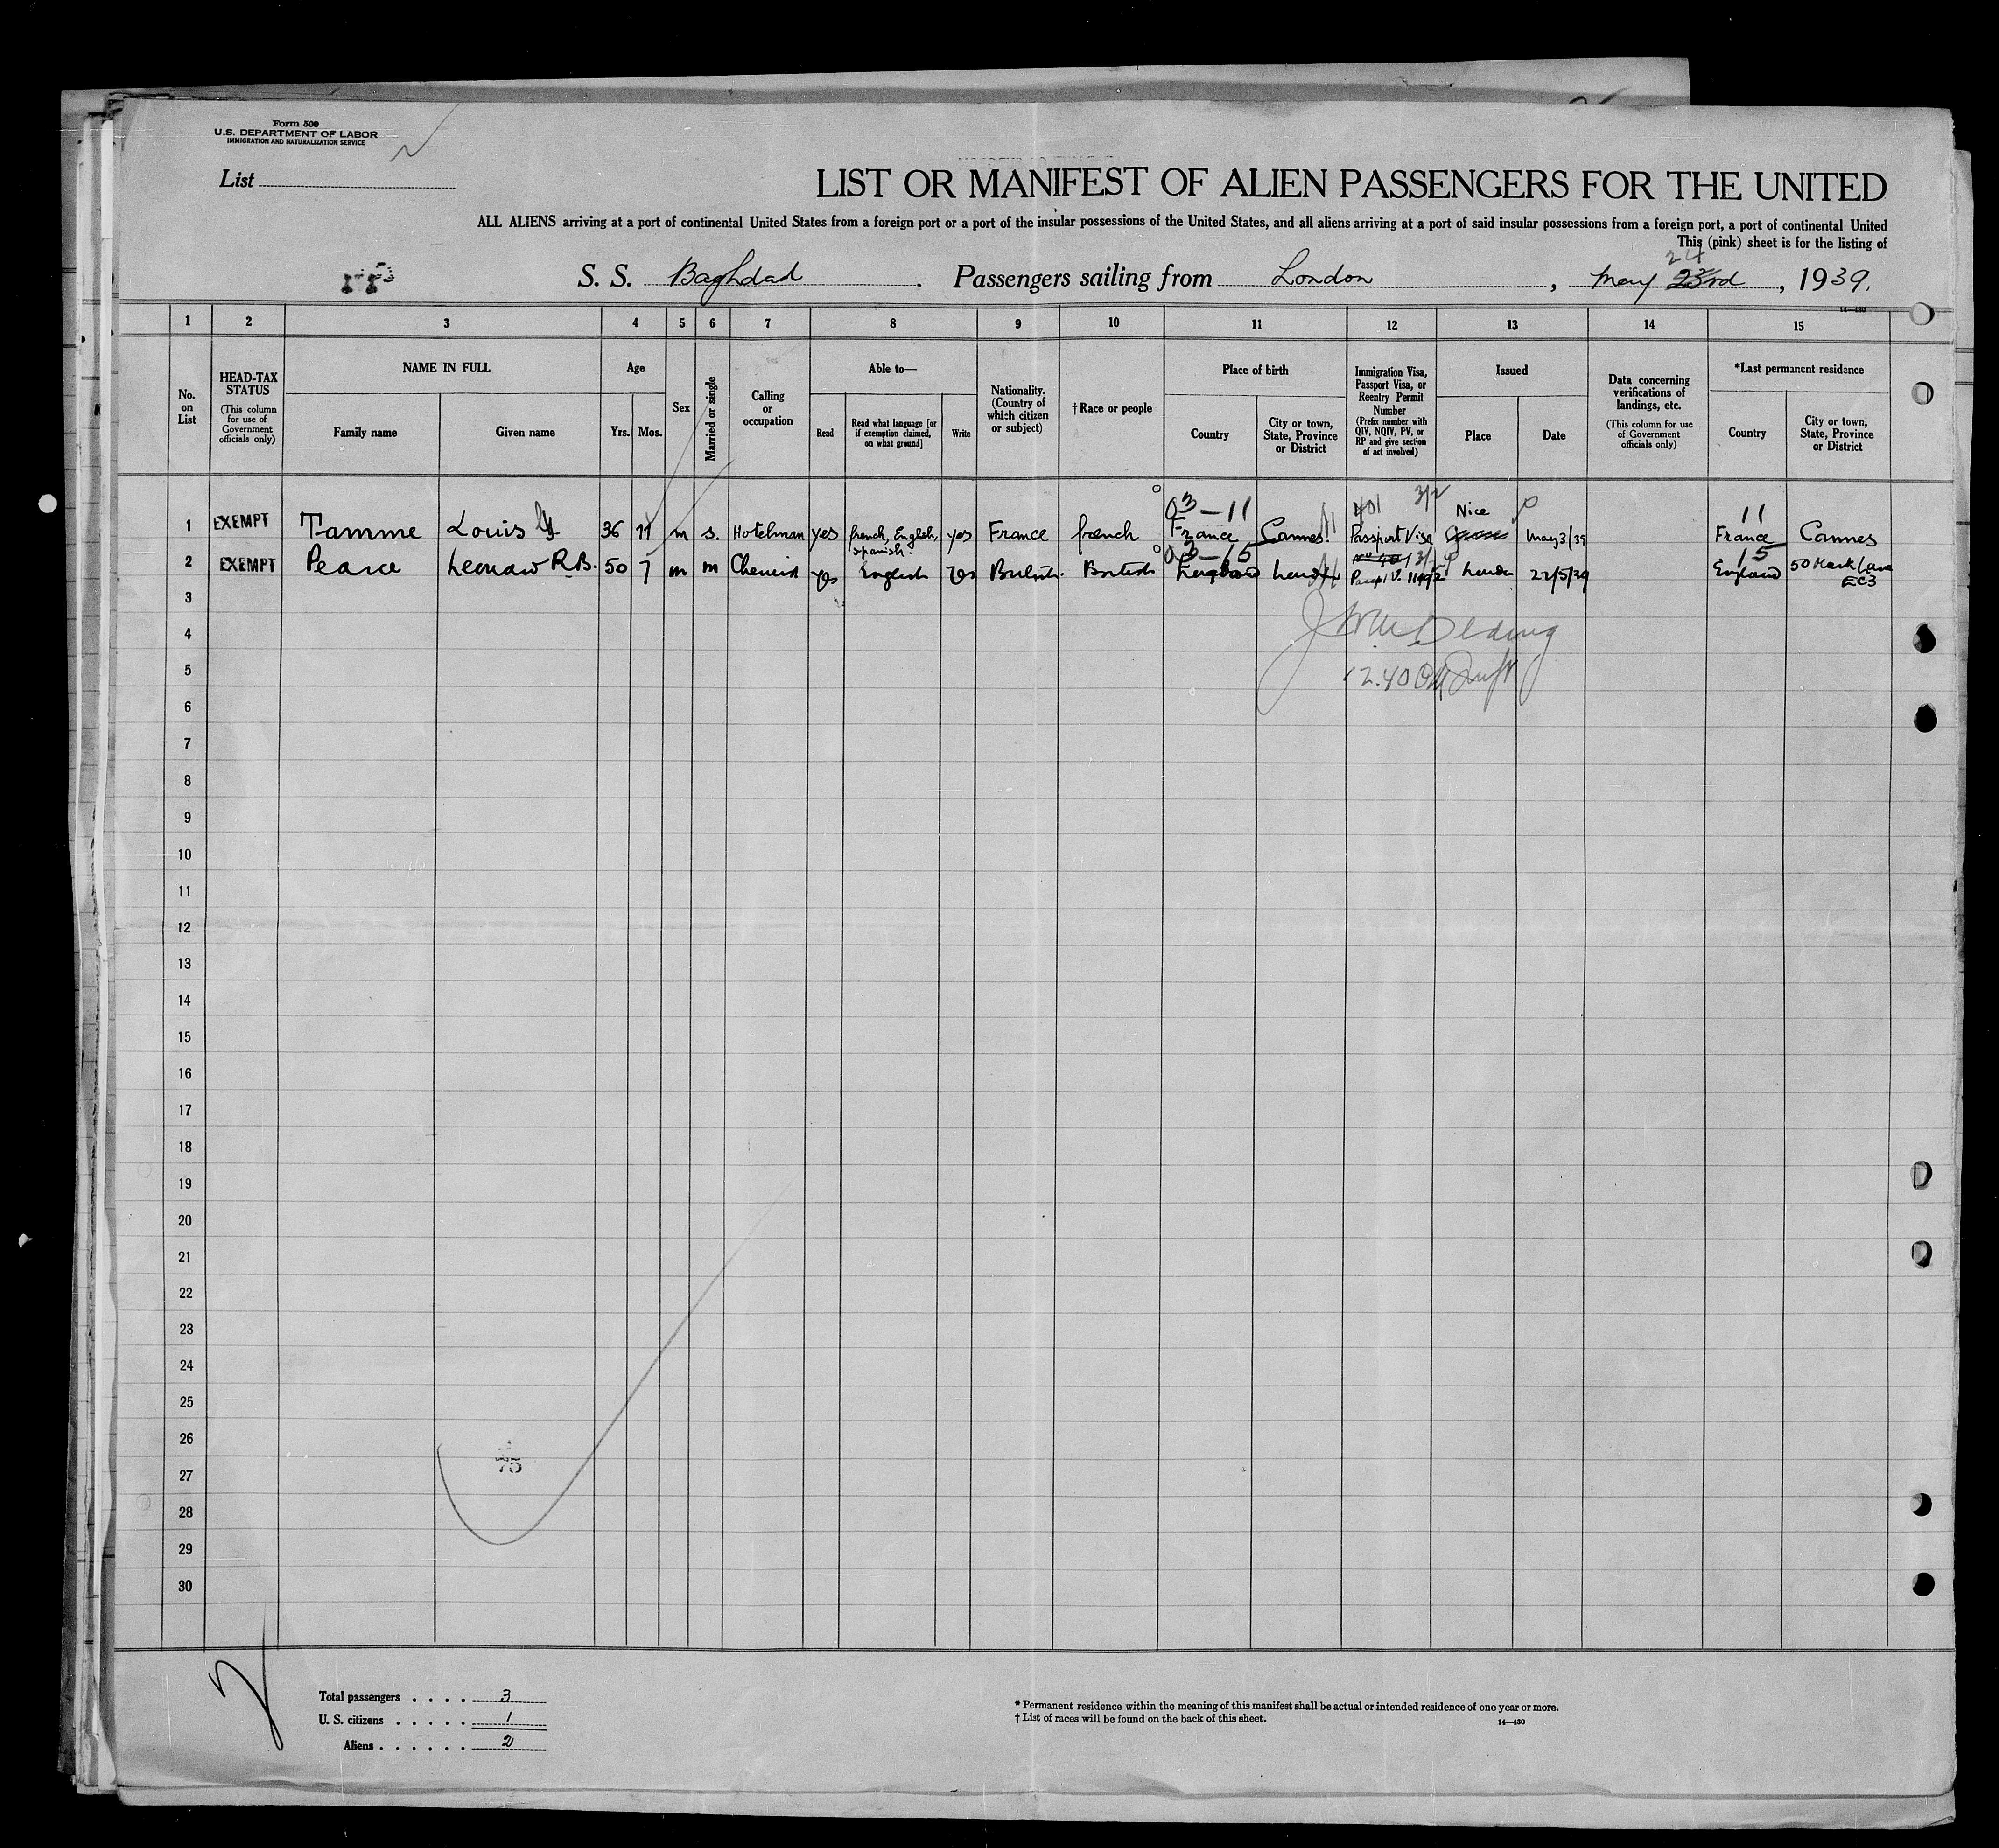 Form 500
U.S. DEPARTMENT OF LABOR
IMMIGRATION AND NATURALIZATION SERVICE
List
LIST OR MANIFEST OF ALIEN PASSENGERS FOR THE UNITED
ALL ALIENS arriving at a port of continental United States from a foreign port or a port of the insular possessions of the United States, and all aliens arriving at a port of said insular possessions from a foreign port, a port of continental United
This (pink) sheet is for the listing of
24
S. S. Baghdad . Passengers sailing from London , May 23rd , 1939.
14—430
1 2 3 4 5 6 7 8 9 10 11 12 13 14 15
No. on List
HEAD-TAX STATUS (This column for use of Government officials only)
NAME IN FULL
Family name Given name
Age
Yrs. Mos.
Sex
Married or single
Calling or occupation
Able to—
Read Read what language [or if exemption claimed, on what ground] Write
Nationality. (Country of which citizen or subject)
† Race or people
Place of birth
Country City or town, State, Province or District
Immigration Visa, Passport Visa, or Reentry Permit Number (Prefix number with QIV, NQIV, PV, or RP and give section of act involved)
Issued
Place Date
Data concerning verifications of landings, etc. (This column for use of Government officials only)
*Last permanent residence
Country City or town, State, Province or District
03—11 401 3/2 Nice 11
1 EXEMPT Tamme Louis 36 11 m s. Hotelman yes french, English, spanish. yes France french France Cannes Passport Visa May 3/39 France Cannes
03—15 15
2 EXEMPT Pearce R.B. 50 7 m m Chemist yes English yes British British England London London 22/5/39 England 50 Mark Lane EC3
3
4
5 12.40
6
7
8
9
10
11
12
13
14
15
16
17
18
19
20
21
22
23
24
25
26
27 75
28
29
30
Total passengers . . . . 3
U. S. citizens . . . . . 1
Aliens . . . . . . 2
* Permanent residence within the meaning of this manifest shall be actual or intended residence of one year or more.
† List of races will be found on the back of this sheet.
14—430